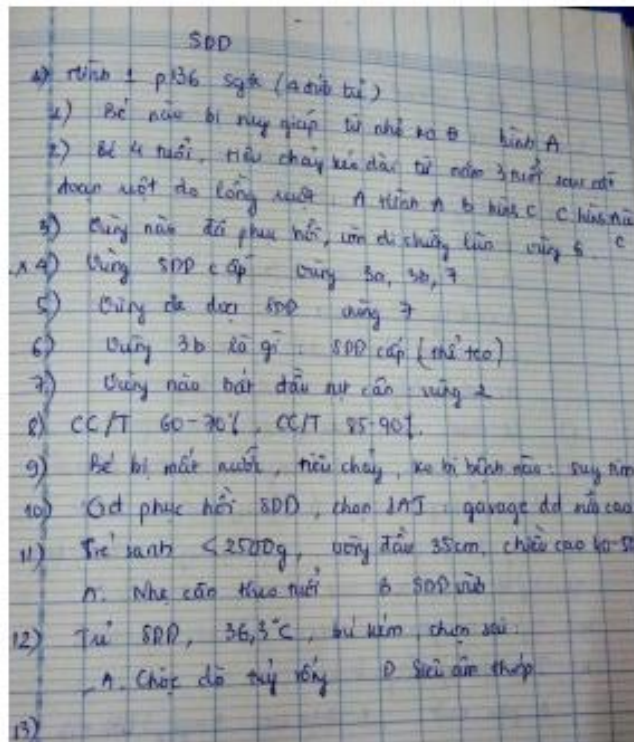 SDD
1) Hình 1 p136 sgk (4 đứa trẻ)
1) Bé nào bị suy giáp từ nhỏ hình A
2) Bé 4 tuổi, tiêu chảy kéo dài từ năm 3 tuổi sau cắt
đoạn ruột do lồng ruột. A Hình A B hình C C hình
3) Vùng nào đã phục hồi, còn di chứng lùn vùng 6
4) Vùng SDD cấp vùng 3a, 3b, 7
5) Vùng đe dọa SDD vùng 7
6) Vùng 3b là gì: SDD cấp (thể teo)
7) Vùng nào bắt đầu sụt cân vùng 2
8) CC/T 60-70%, CC/T 85-90%.
9) Bé bị mất nước, tiêu chảy, ko bị bệnh nào: suy tim
10) Gđ phục hồi SDD, chọn SAI: gavage dd cao
11) Trẻ sanh <2500g, vòng đầu 35cm, chiều cao
A. Nhẹ cân theo tuổi B SDD
12) Trẻ SDD, 36,3°C, bú kém, chọn sai:
A. Chọc dò tủy sống D Siêu âm thóp
13)